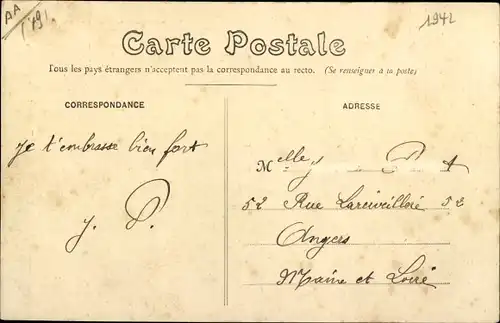 AA
191
1942
Carte Postale
Tous les pays étrangers n'acceptent pas la correspondance au recto. (Se renseigner à la poste)
CORRESPONDANCE
ADRESSE
Je t'embrasse bien fort
J. P.
Melle J P
52 Rue Lareveillère 52
Angers
Maine et Loire